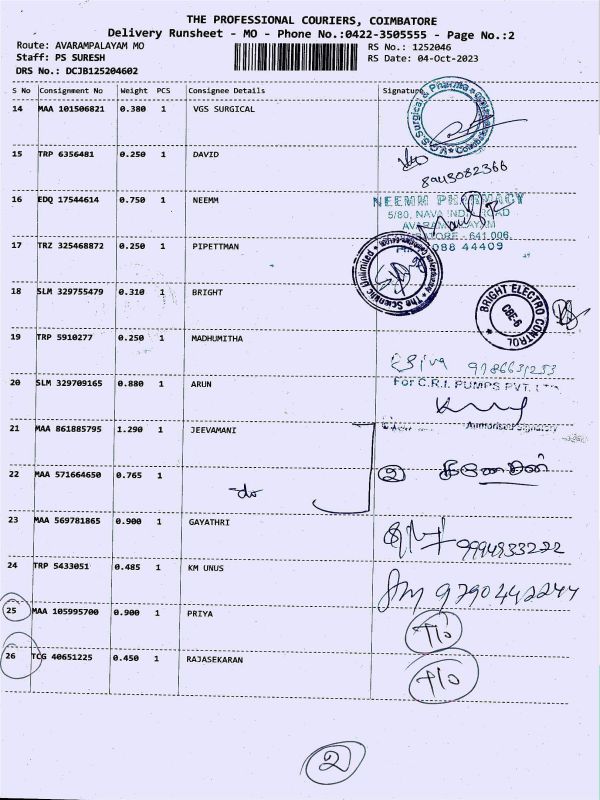 THE PROFESSIONAL COURIERS, COIMBATORE
Delivery Runsheet - MO - Phone No.:0422-3505555 - Page No.:2
Route: AVARAMPALAYAM MO RS No.: 1252046
Staff: PS SURESH RS Date: 04-Oct-2023
DRS No.: DCJB125204602
S No Consignment No Weight PCS Consignee Details Signature
14 MAA 101506821 0.380 1 VGS SURGICAL
15 TRP 6356481 0.250 1 DAVID
8943082366
16 EDQ 17544614 0.750 1 NEEMM
NEEMM PHARMACY
5/80, NAVA INDIA ROAD
AVARAMPALAYAM
641 006
088 44409
17 TRZ 325468872 0.250 1 PIPETTMAN
The Scientific Unlimited
18 SLM 329755479 0.310 1 BRIGHT
BRIGHT ELECTRO CONTROL
CBE-6
19 TRP 5910277 0.250 1 MADHUMITHA
Siva 9786631253
20 SLM 329709165 0.880 1 ARUN
For C.R.I. PUMPS PVT. LTD.
Authorised Signatory
21 MAA 861885795 1.290 1 JEEVAMANI
22 MAA 571664650 0.765 1 -do
②
23 MAA 569781865 0.900 1 GAYATHRI
9994933222
24 TRP 5433051 0.485 1 KM UNUS
9790442244
25 MAA 105995700 0.900 1 PRIYA T/o
26 TCG 40651225 0.450 1 RAJASEKARAN T/o
②